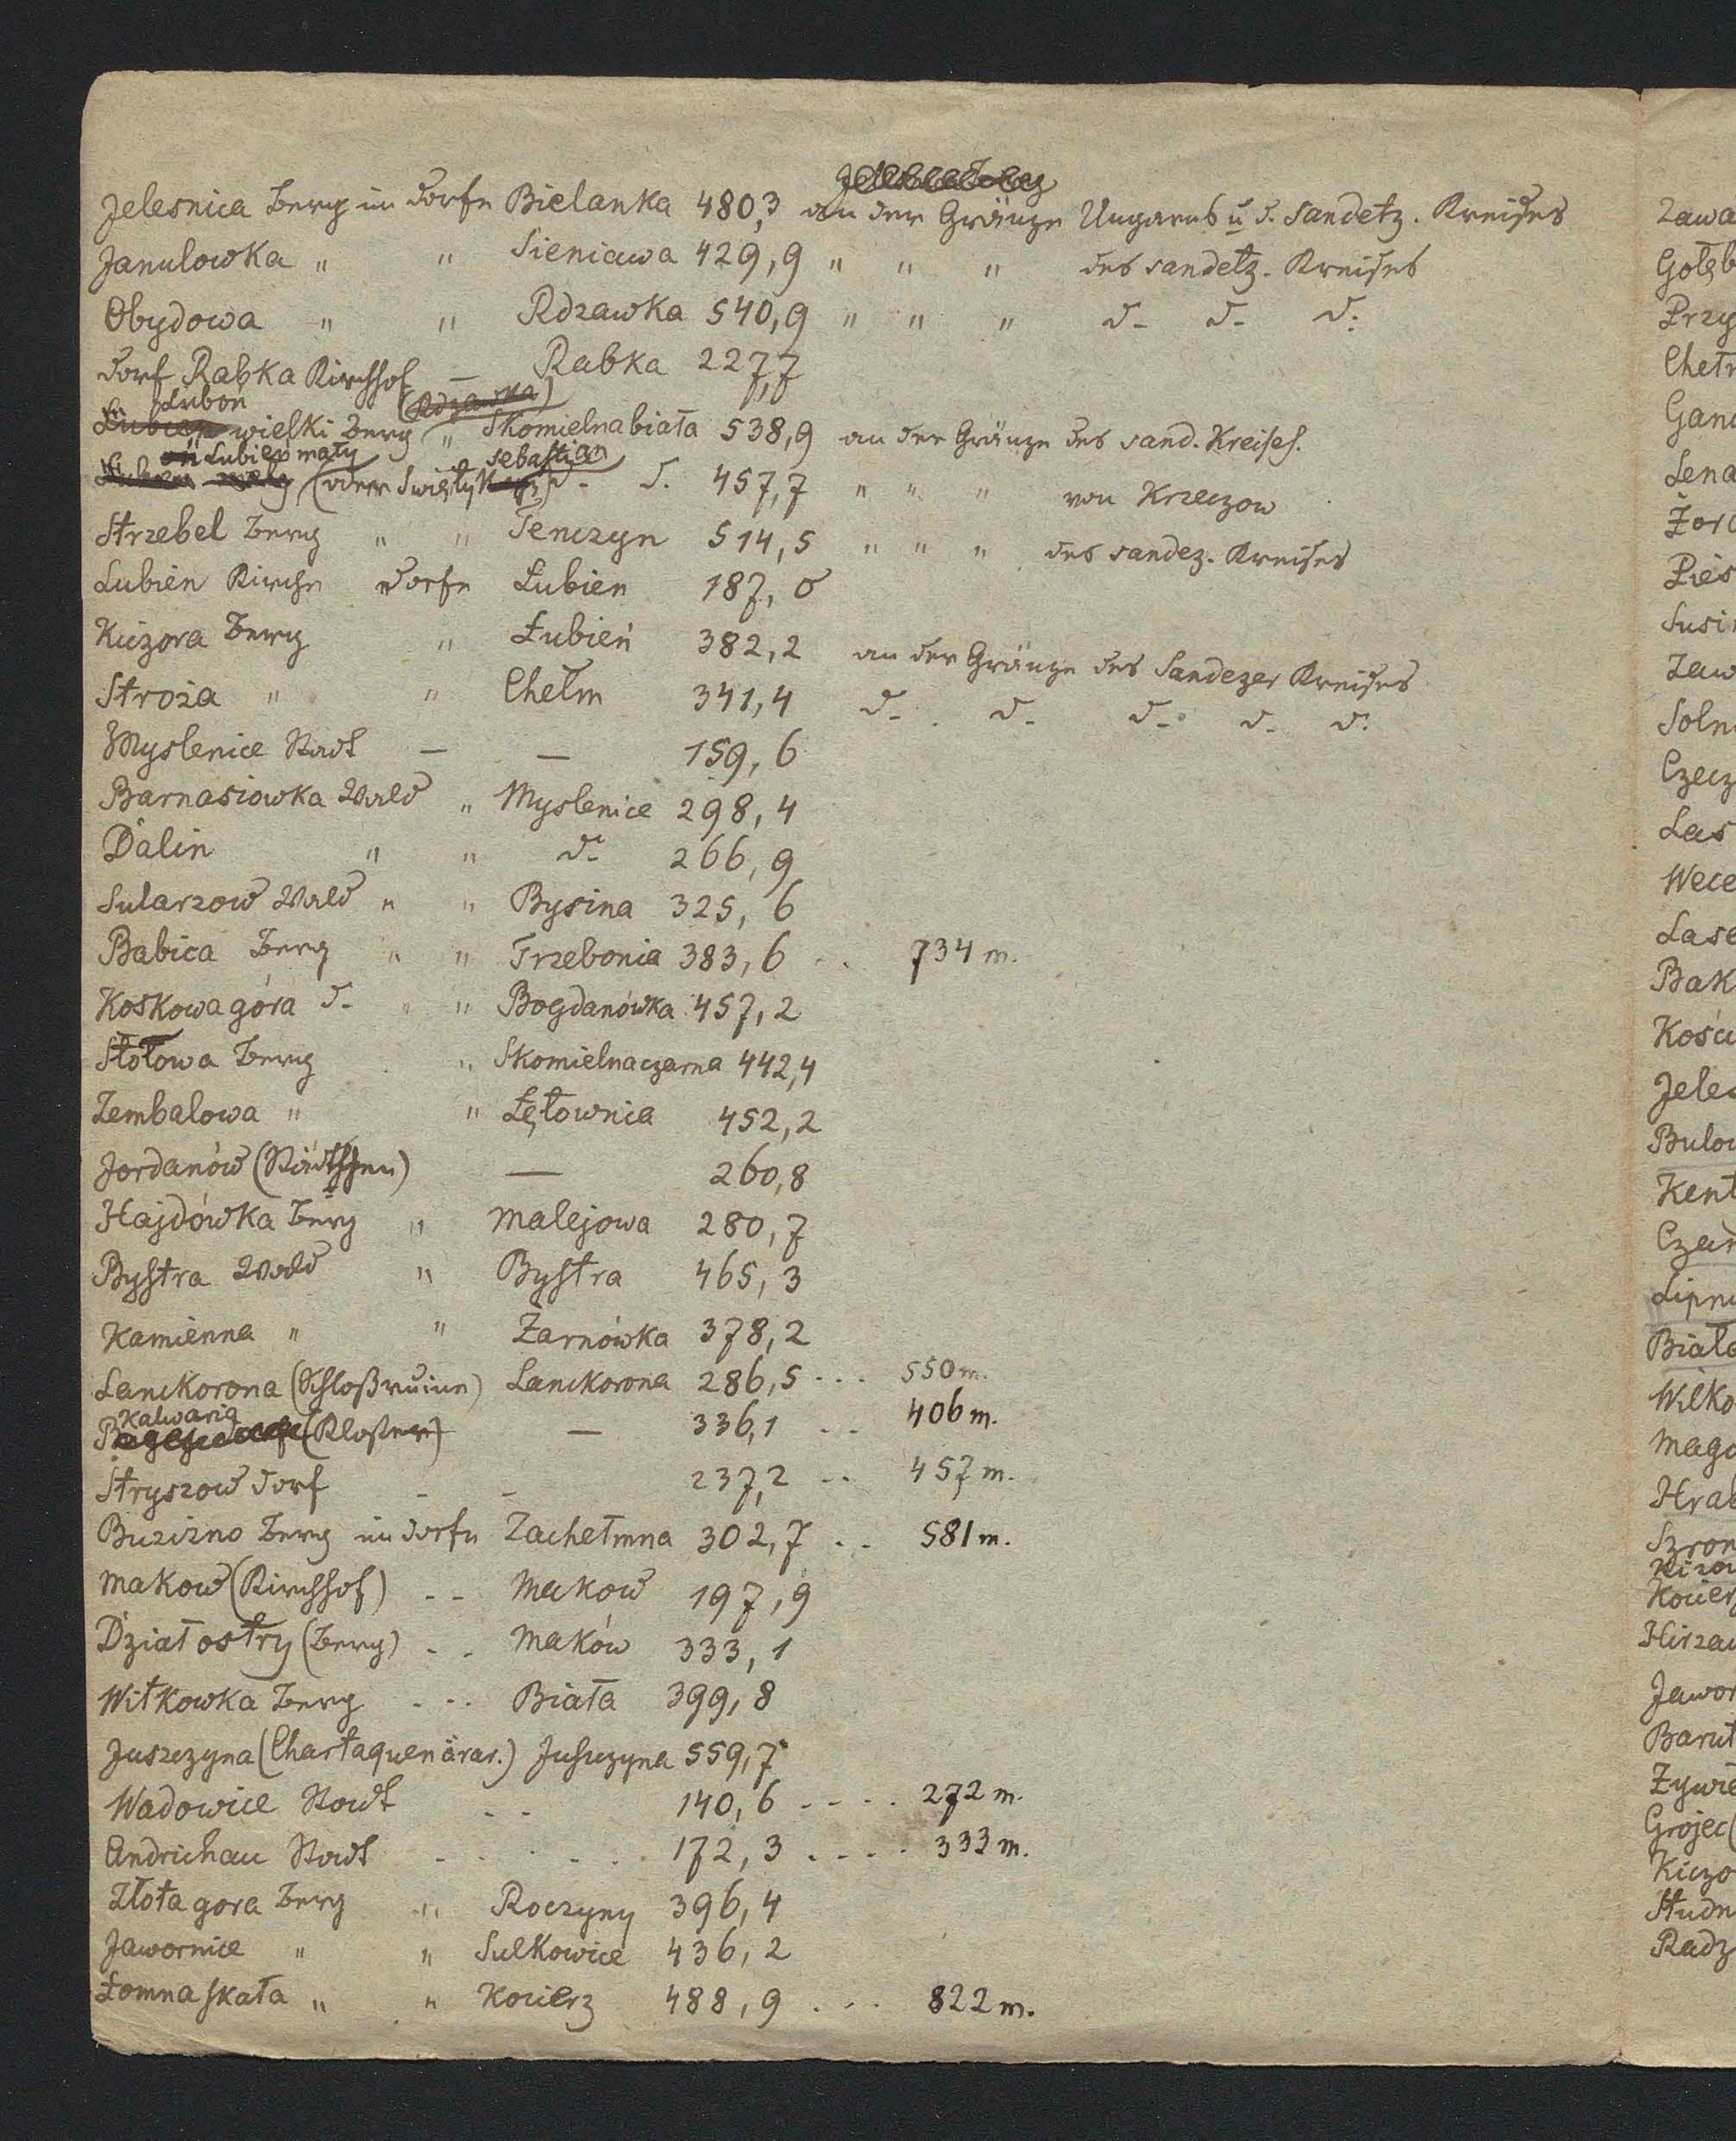 Jelesnica Berg im Dorfe Bielanka 480,3 an der Gränze Ungarns u d. Sandetz. Kreises
Janulowka " " Sieniawa 429,9 " " " des sandetz. Kreises
Obydowa " " Rdzawka 540,9 " " " d- d- d:
Dorf Rabka Kirchhof — Rabka 227,7
Luboń (Rdzawka)
wielki Berg " Skomielna biała 538,9 an der Gränze des sand. Kreises.
Lubień mały Sebastian
(oder Święty d- d. 457,7 " " " von Krzeczow
Strzebel Berg " " Tenczyn 514,5 " " " des sandez. Kreises
Lubien Kirche Dorfe Łubien 187,0
Kiczora Berg " Łubień 382,2 an der Gränze des Sandezer Kreises
Stroża " " Chełm 341,4 d- d- d- d- d:
Myslenice Stadt — — 159,6
Barnasiowka Wald " Myslenice 298,4
Dalin " " d: 266,9
Sularzow Wald " " Bysina 325,6
Babica Berg " " Trzebonia 383,6 .. 734 m.
Koskowa góra d- " " Bogdanówka 457,2
Stołowa Berg " Skomielna czarna 442,4
Zembalowa " " Łętownia 452,2
Jordanów (Städtchen) — 260,8
Hajdówka Berg " Malejowa 280,7
Bystra Wald " Bystra 465,3
Kamienna " " Żarnówka 378,2
Lanckorona (Schloßruine) Lanckorona 286,5 ... 550 m.
Kalwaria
(Kloster) — 336,1 .. 406 m.
Stryszow Dorf - - 237,2 .. 457 m.
Buzizno Berg im Dorfe Zachełmna 302,7 .. 581 m.
Makow (Kirchhof) .. Makow 197,9
Dział ostry (Berg) .. Maków 333,1
Witkowka Berg ... Biała 399,8
Juszczyna (Chartaquen ärar.) Juszczyna 559,7
Wadowice Stadt .. 140,6 .... 272 m.
Andrichau Stadt ...... 172,3 .... 333 m.
Złota gora Berg " Roczyny 396,4
Jawornice " " Sulkowice 436,2
Łomna skała " " Kocierz 488,9 ... 822 m.
Zawa
Gołęb
Przy
Chełm
Gand
Lena
Żor
Pies
Susi
Zaw
Soln
Czecz
Las
Wece
Lase
Bak
Kości
Jeles
Bulow
Kent
Czar
Lipni
Biała
Wilko
Mago
Hrab
Szron
Kocierz
Hirzaw
Jawor
Barut
Zywie
Grojec (
Kiczo
Studn
Radz